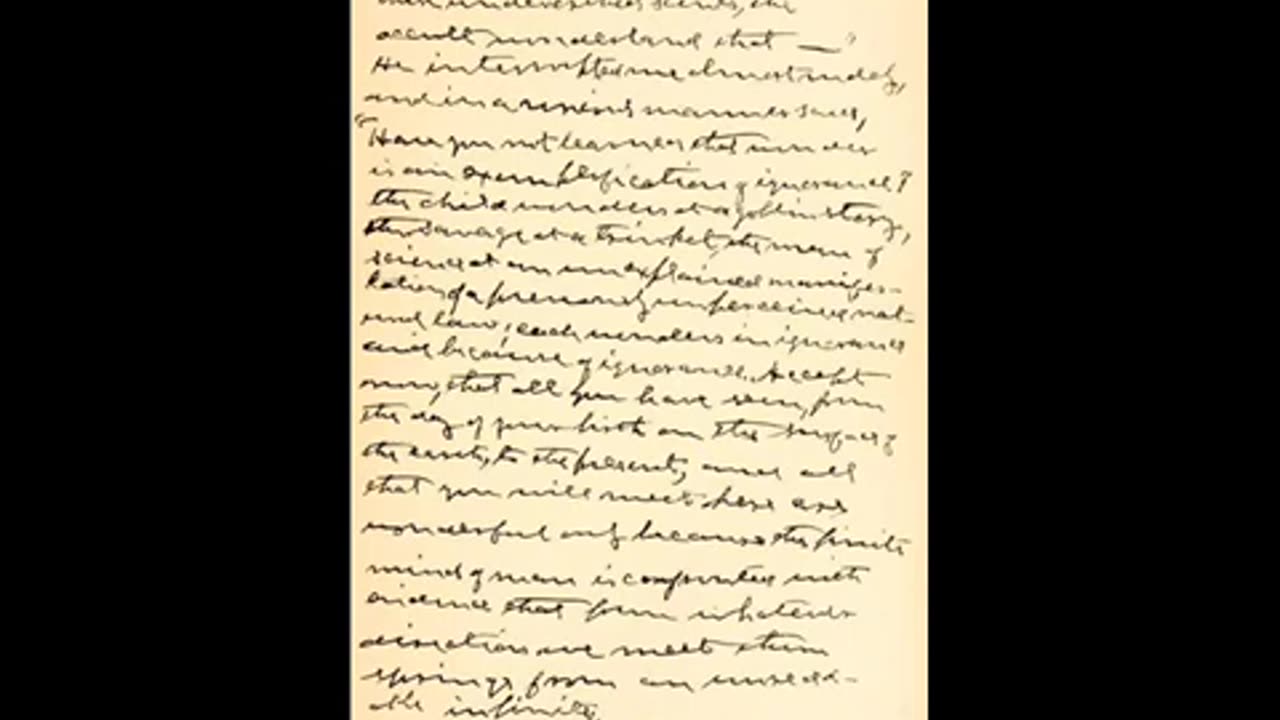 occult wonderland that —"
He interrupted me almost rudely,
and in a serious manner said,
"Have you not learned that wonder
is an exemplification of ignorance?
the child wonders at a goblin story,
the savage at a trinket, the man of
science at an unexplained manifes-
tation of a previously unperceived nat-
ural law; each wonders in ignorance
and because of ignorance. Accept
now, that all you have seen, from
the day of your birth on the surface of
the earth, to the present, and all
that you will meet here are
wonderful only because the finite
mind of man is confronted with
evidence that from whatever
direction we meet them
springs from an unseea-
ble infinity